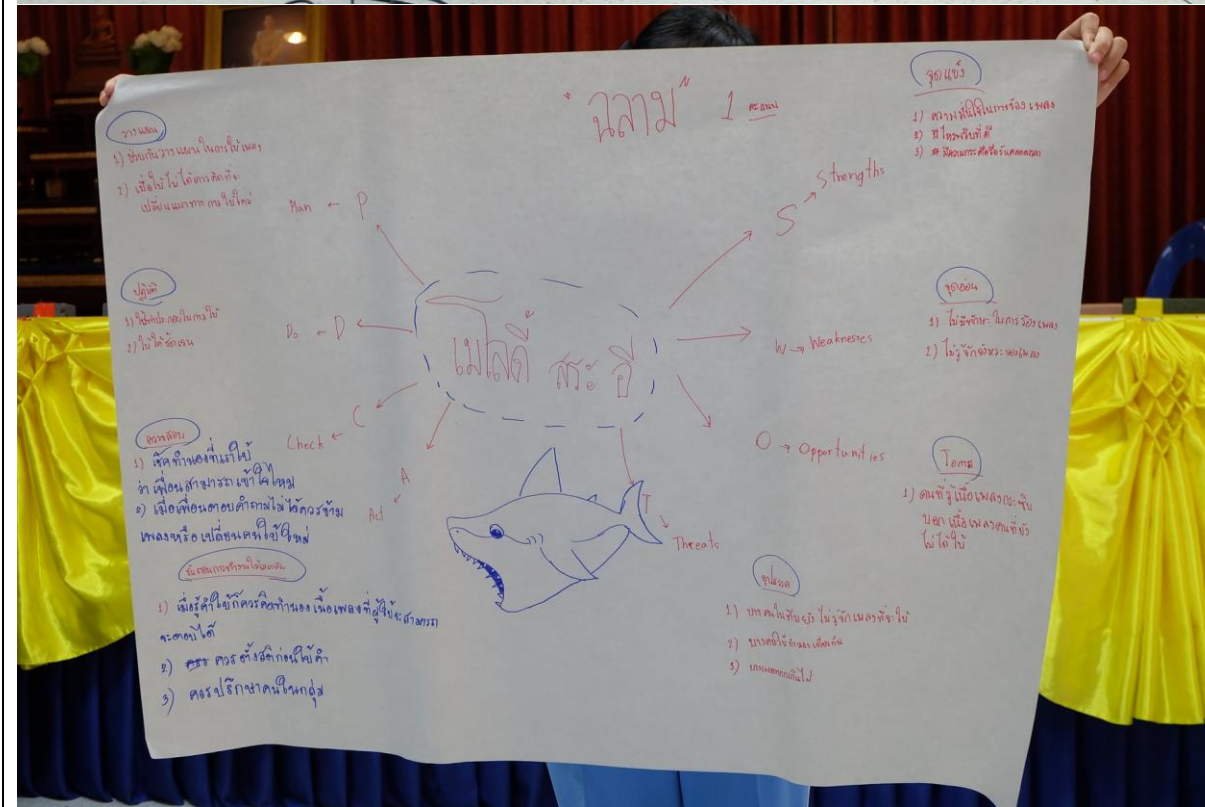 "ฉลาม" 1 คะแนน
วางแผน
1) ช่วยกันวางแผนในการใบ้เพลง
2) เมื่อใบ้ไม่ได้ควรคิดที่จะ
เปลี่ยนแนวทางการใบ้ใหม่
Plan ← P
ปฏิบัติ
1) ใช้ท่าประกอบในการใบ้
2) ใบ้ให้ชัดเจน
Do ← D
ตรวจสอบ
1) เช็คทำนองที่เราใบ้
ว่าเพื่อนสามารถเข้าใจไหม
2) เมื่อเพื่อนตอบคำถามไม่ได้ควรข้าม
เพลงหรือเปลี่ยนคนใบ้ใหม่
Check ← C
A
Act
1) เมื่อรู้คำใบ้ก็ควรคิดทำนองเนื้อเพลงที่ผู้ใบ้จะสามารถ
จะตอบได้
2) ควรตั้งสติก่อนใบ้คำ
3) ควรปรึกษาคนในกลุ่ม
เมโลดี้ สระ อี
S → Strengths
จุดแข็ง
1) ความมั่นใจในการร้องเพลง
2) มีไหวพริบที่ดี
3) มีความกระตือรือร้นตลอดเวลา
W → Weaknesses
จุดอ่อน
1) ไม่มีทักษะในการร้องเพลง
2) ไม่รู้จักจังหวะของเพลง
O → Opportunities
โอกาส
1) คนที่รู้เนื้อเพลงกระซิบ
บอกเนื้อเพลงคนที่ยัง
ไม่ได้ใบ้
T
Threats
อุปสรรค
1) บางคนในทีมยังไม่รู้จักเพลงที่จะใบ้
2) บางคนใบ้ทำนองเดียวกัน
3) บางเพลงยากเกินไป